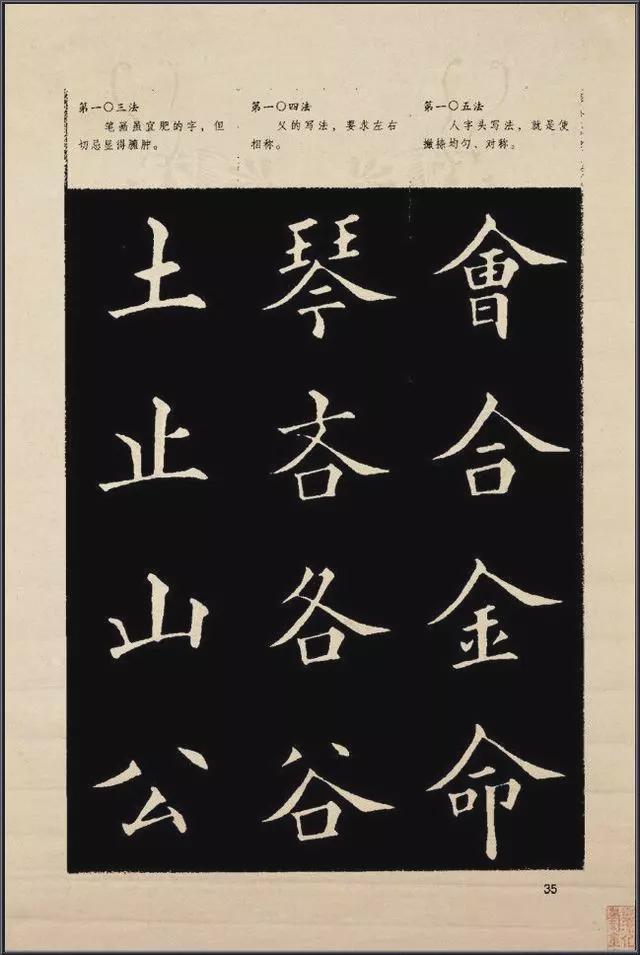 第一〇三法
笔画虽宜肥的字，但
切忌显得臃肿。
第一〇四法
父的写法，要求左右
相称。
第一〇五法
人字头写法，就是使
撇捺均匀、对称。
土止山公
琴吝各谷
會合金命
35